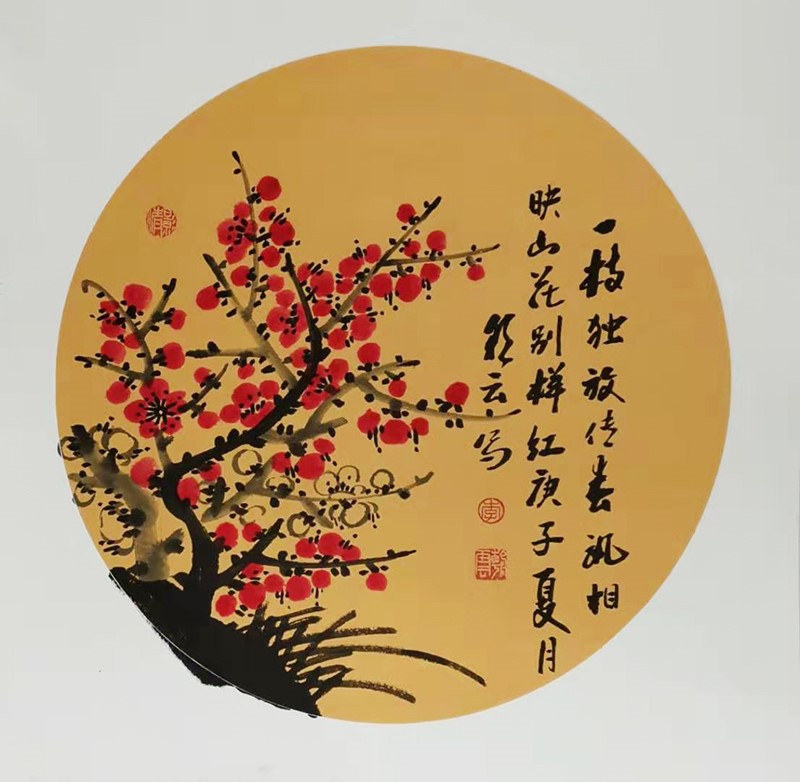 一枝独放传春讯相
映山花别样红庚子夏月
云写
李